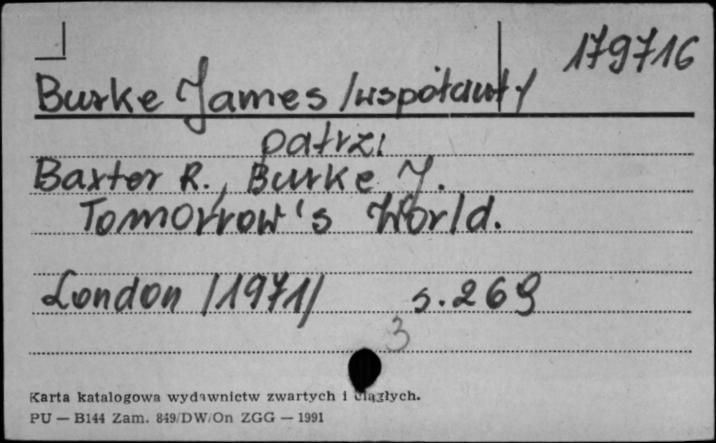 179716
Burke James /współaut/
patrz:
Baxter R., Burke J.
Tomorrow's World.
London /1971/ s.269
3
Karta katalogowa wydawnictw zwartych i ciągłych.
PU — B144 Zam. 849/DW/On ZGG — 1991